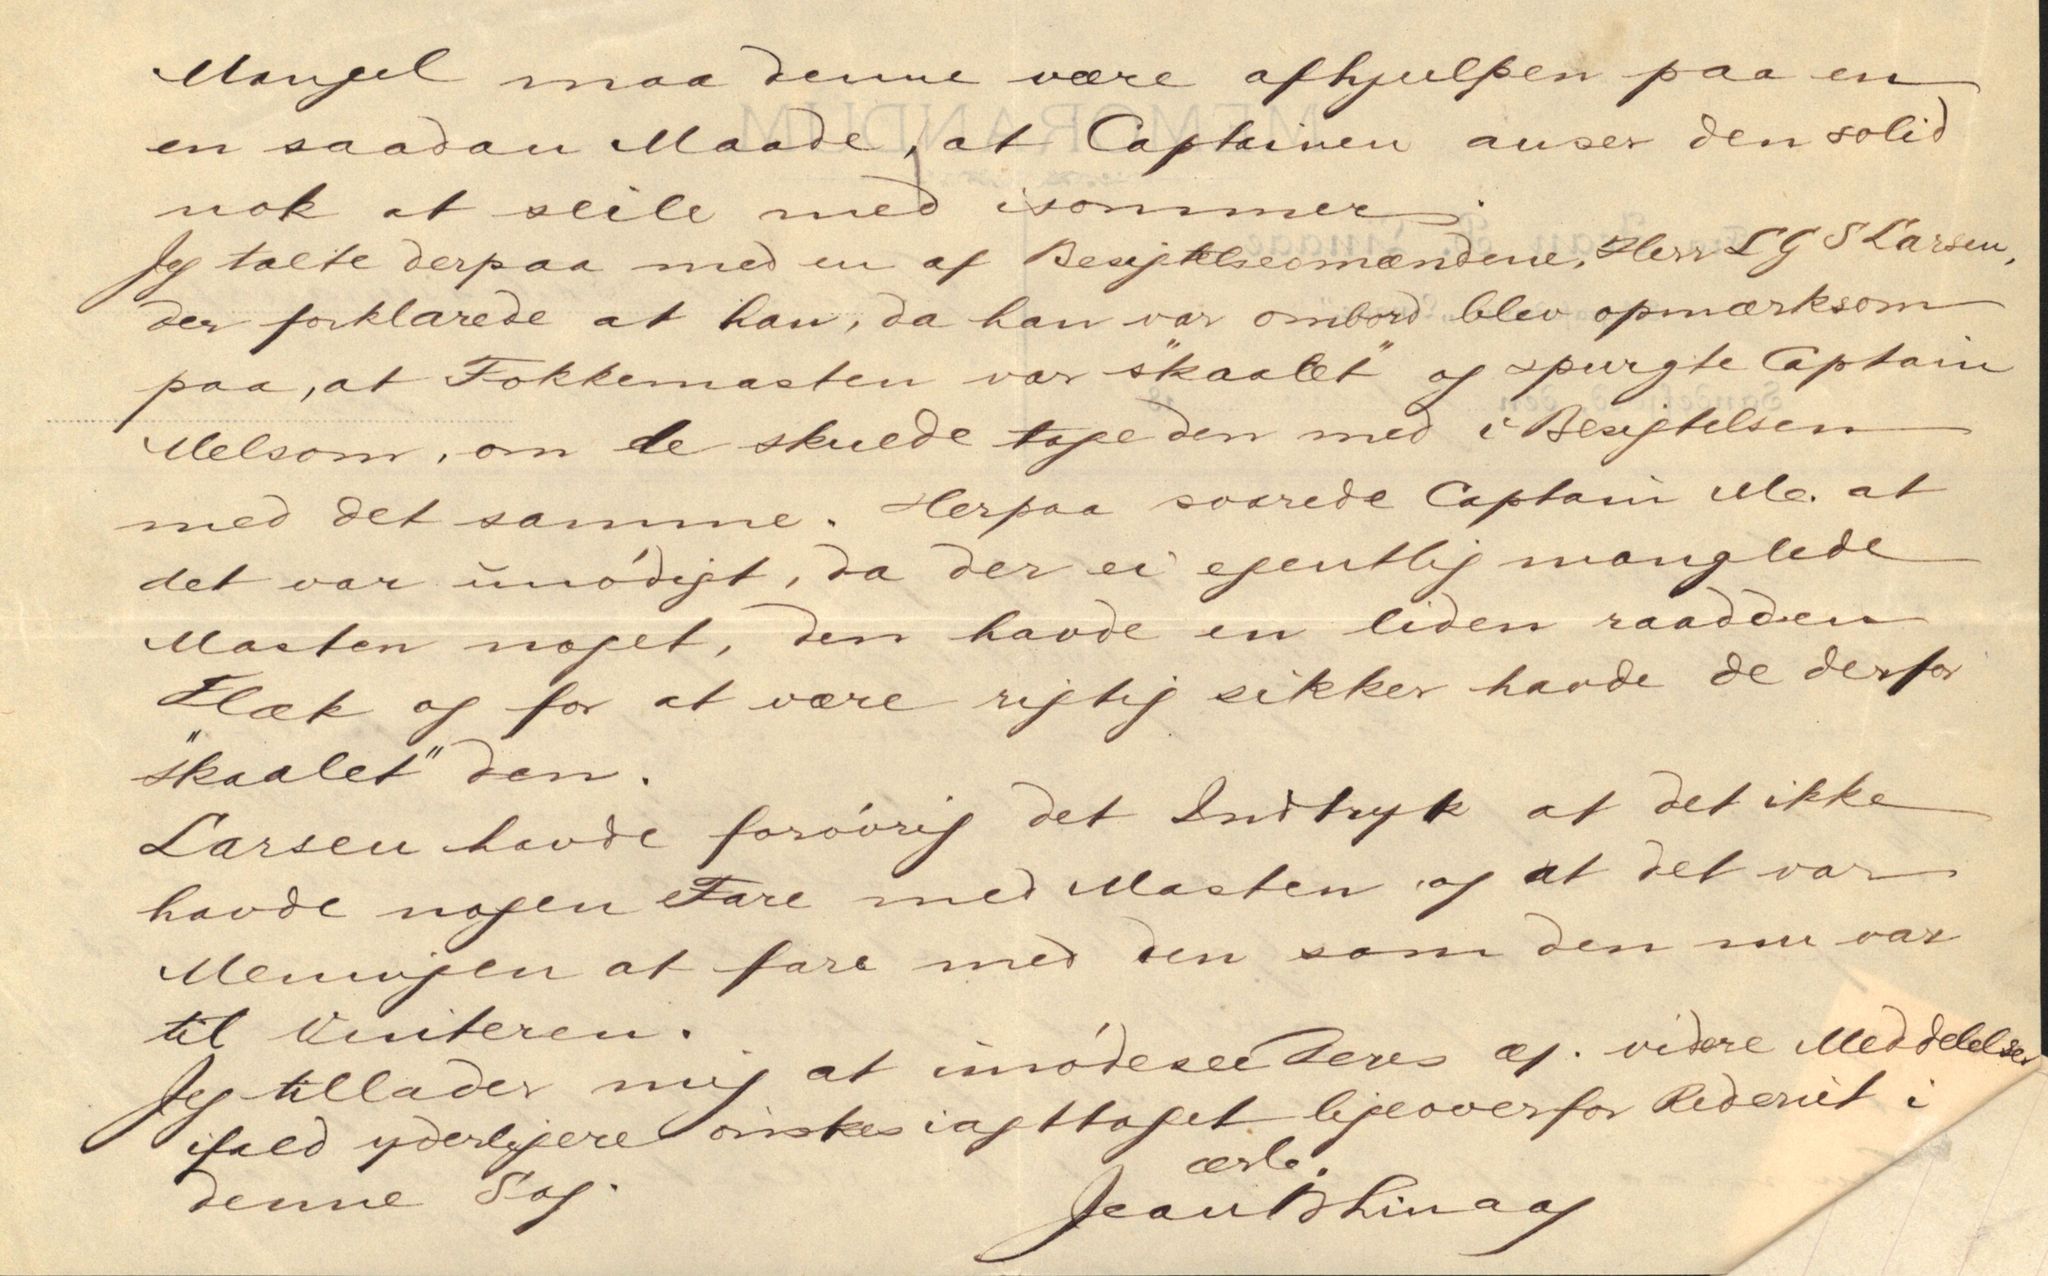 Mangel maa denne være afhjulpen paa en
en saadan Maade, at Captainen anser den solid
nok at seile med isommer.
Jeg talte derpaa med en af Besigtelsesmændene, Herr L G S Larsen,
der forklarede at han, da han var ombord blev opmærksom
paa, at Fokkemasten var "skaalet" og spurgte Captain
Melsom, om de skulde tage den med i Besigtelsen
med det samme. Herpaa svarede Captain Me. at
det var unódigt, da der ei egentlig manglede
Masten noget, den havde en liden raadden
Flæk og for at være rigtig sikker havde de derfor
"skaalet" den.
Larsen havde foróvrig det Indtryk at det ikke
havde nogen Fare med Masten og at det var
Meningen at fare med den som den nu var
til Vinteren.
Jeg tillader mig at imódesee Deres æg. videre Meddelelser
ifald yderligere ónskes iagttaget ligeoverfor Rederiet i
denne Sag.
ærb.
Jean B Linaag
MEMORANDUM
Sandefjord, den 18